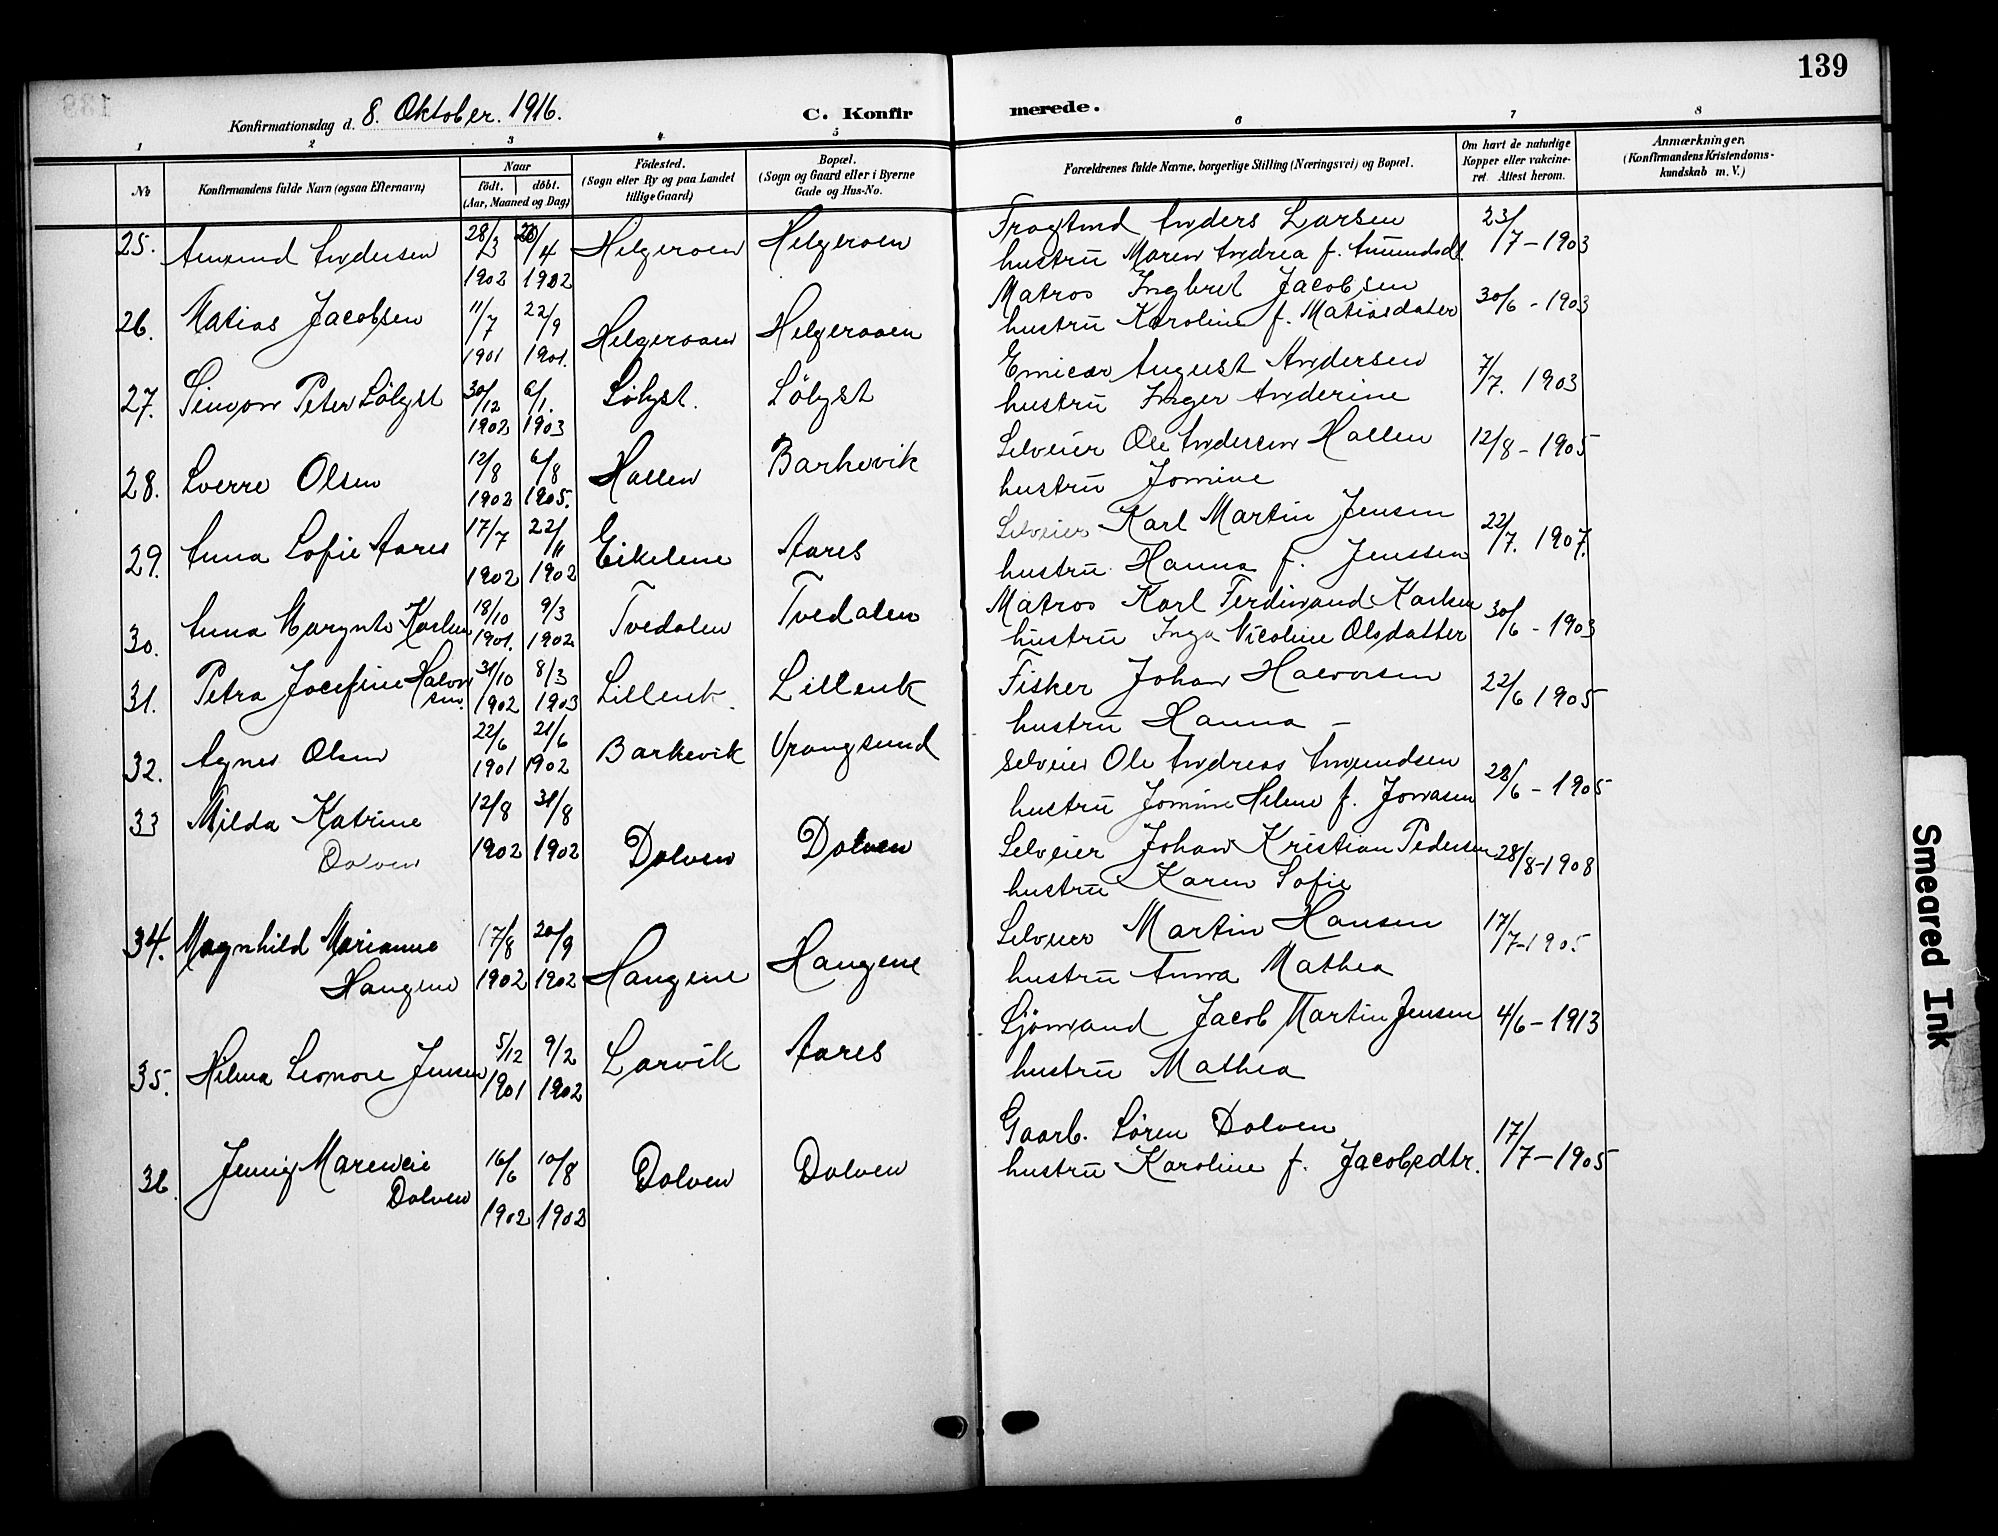 139
Konfirmationsdag d. 8. Oktober. 1916.
C. Konfirmerede.
1 2 3 4 5 6 7 8
No
Konfirmandens fulde Navn (ogsaa Efternavn)
Naar
födt. döbt.
(Aar, Maaned og Dag)
Födested.
(Sogn eller By og paa Landet
tillige Gaard)
Bopæl.
(Sogn og Gaard eller i Byerne
Gade og Hus-No.
Forældrenes fulde Navne, borgerlige Stilling (Næringsvei) og Bopæl.
Om havt de naturlige
Kopper eller vakcine-
ret. Attest herom.
Anmærkninger.
(Konfirmandens Kristendoms-
kundskab m. V.)
25. Amund Andersen 28/3 1902 20/4 1902 Helgeroen Helgeroen
Anders Larsen
hustru Maren Andrea f. Amundsdt. 23/7-1903
26. Matias Jacobsen 11/7 1901 22/9 1901. Helgeroaen Helgeroaen
Matros Ingbret Jacobsen
hustru Karoline f. Matiasdater 30/6 - 1903
27. Simon Peter Lölyst 30/12 1902 6/1. 1903 Lölyst. Lölyst
August Andersen
hustru Inger Anderine 7/7. 1903
28. Sverre Olsen 12/8 1902 6/8 1905. Hallen Barkevik
Selveier Ole Andersen Hallen
hustru Jomine 12/8 - 1905
29. Anna Sofie Aares 17/7 1902 22/11 1902 Eikelene Aares
Selveier Karl Martin Jensen
hustru Hanna f. Jenssen 22/7. 1907.
30. Anna Margnte Karlsen 18/10 1901. 9/3 1902 Tvedalen Tvedalen
Matros Karl Ferdinand Karlsen
hustru Inga Nicoline Olsdatter 30/6 - 1903
31. Petra Josefine Halvorsen. 31/10 1902 8/3 1903 Lillevik. Lillevik
Fisker Johan Halvorsen
hustru Hanna - 22/6 1905
32. Agnes Olsen 22/6 1901 21/6 1902 Barkevik Vrangsund
Selveier Ole Andreas Amundsen
hustru Jomine Helene f. Jonasen 28/6 - 1905
33 Milda Katrine
Dolven 12/8 1902 31/8 1902 Dolven Dolven
Selveier Johan Kristian Pedersen
hustru Karen Sofie 28/8-1908
34. Magnhild Marianne
Haugene 17/8 1902 20/9 1902 Haugene Haugene
Selveier Martin Hansen
hustru Anna Mathea 17/7-1905
35. Hilma Leonore Jensen 5/12 1901 9/2 1902 Larvik Aares
Sjömand Jacob Martin Jensen
hustru Mathea 4/6-1913
36. Jenny
Dolven 16/6 1902 10/8 1902 Dolven Dolven
Gaarb. Sören Dolven
hustru Karoline f. Jacobsdtr. 17/7-1905
Smeared Ink